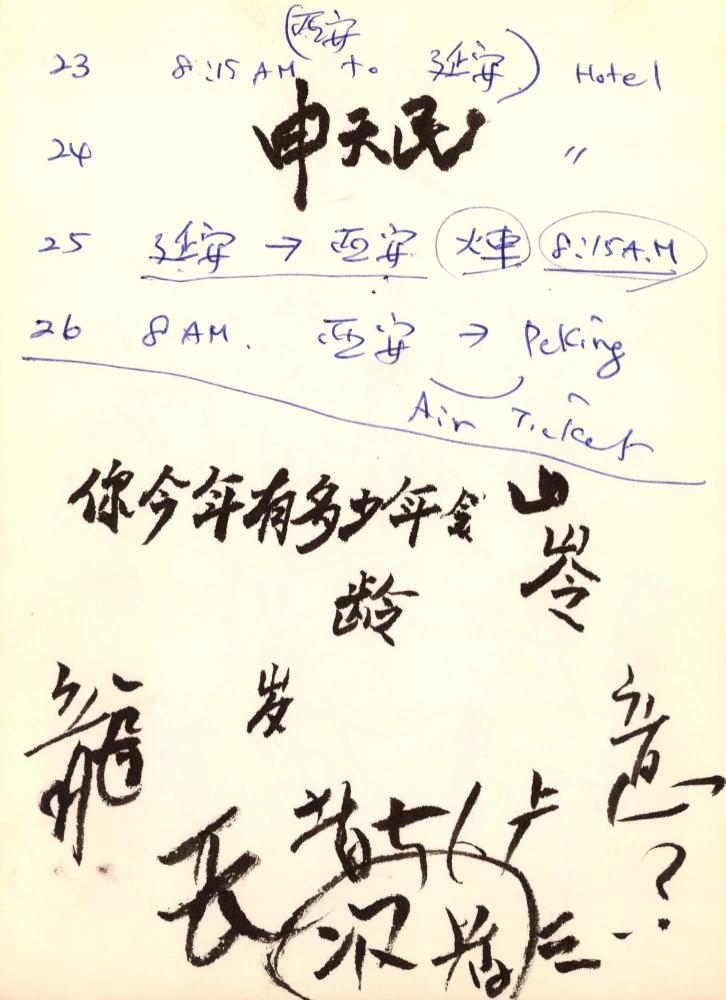 (西安
23 8:15 AM to 延安) Hotel
申天民
24 〃
25 延安 → 西安 火車 8:15 A.M
26 8 AM. 西安 → Peking
Air Ticket
你今年有多少年 山
岺
龄
岁
意
長
?